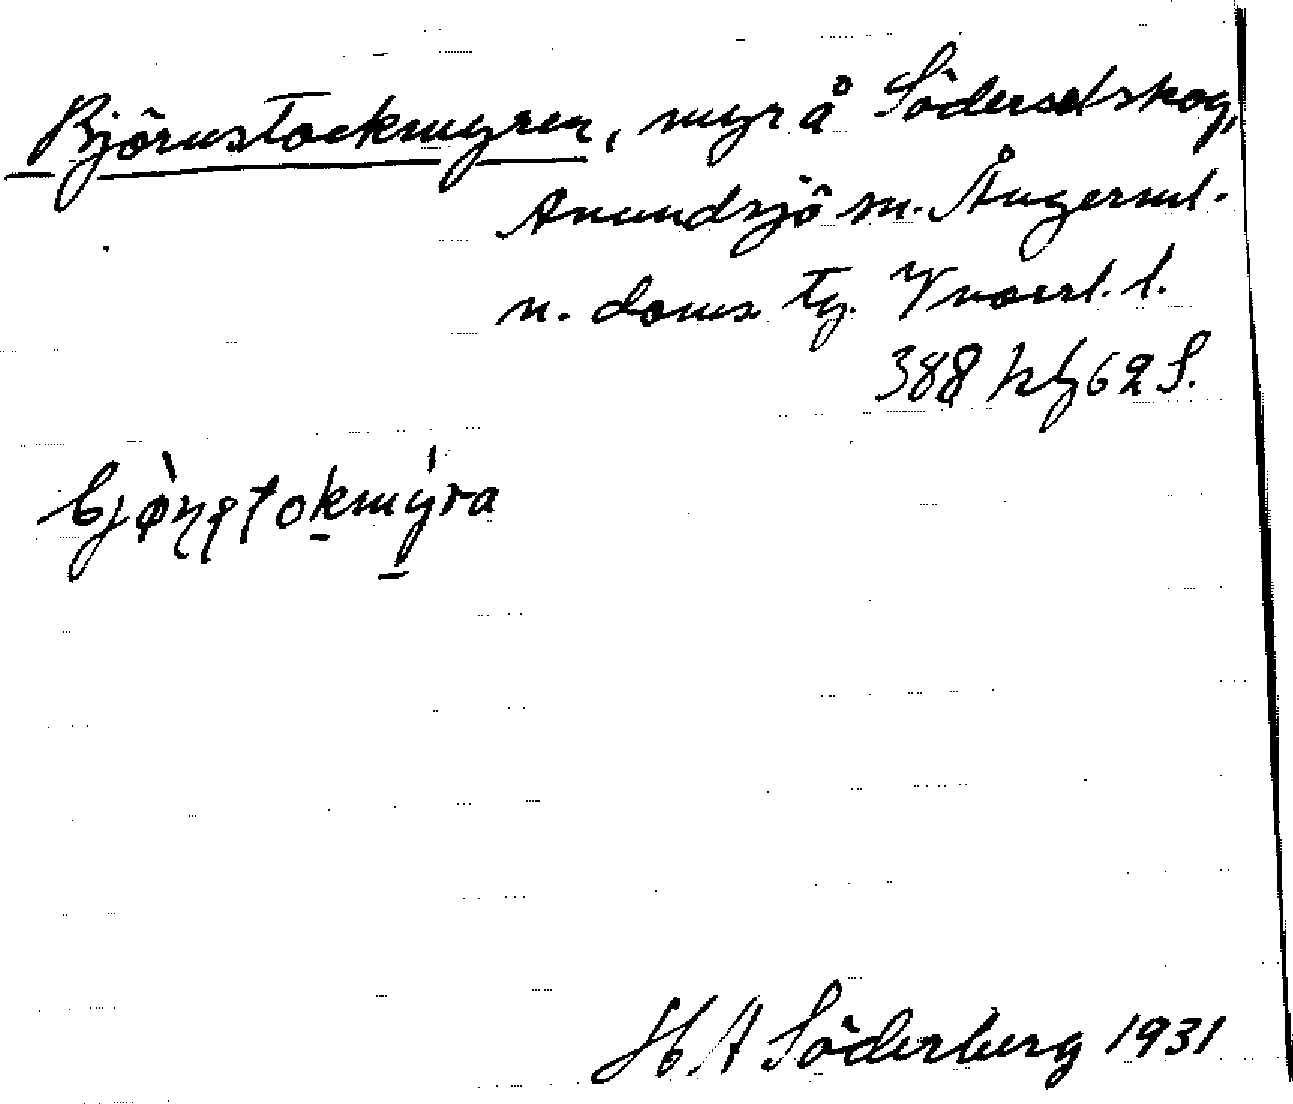 Björnstockmyren, myr å Söderselskog,
Anundsjö sn. Ångerml.
n. doms tg. Vnorrl. l.
388 hg 62 S.
bjø̀ṇṣtokmýra
H. A Söderberg 1931